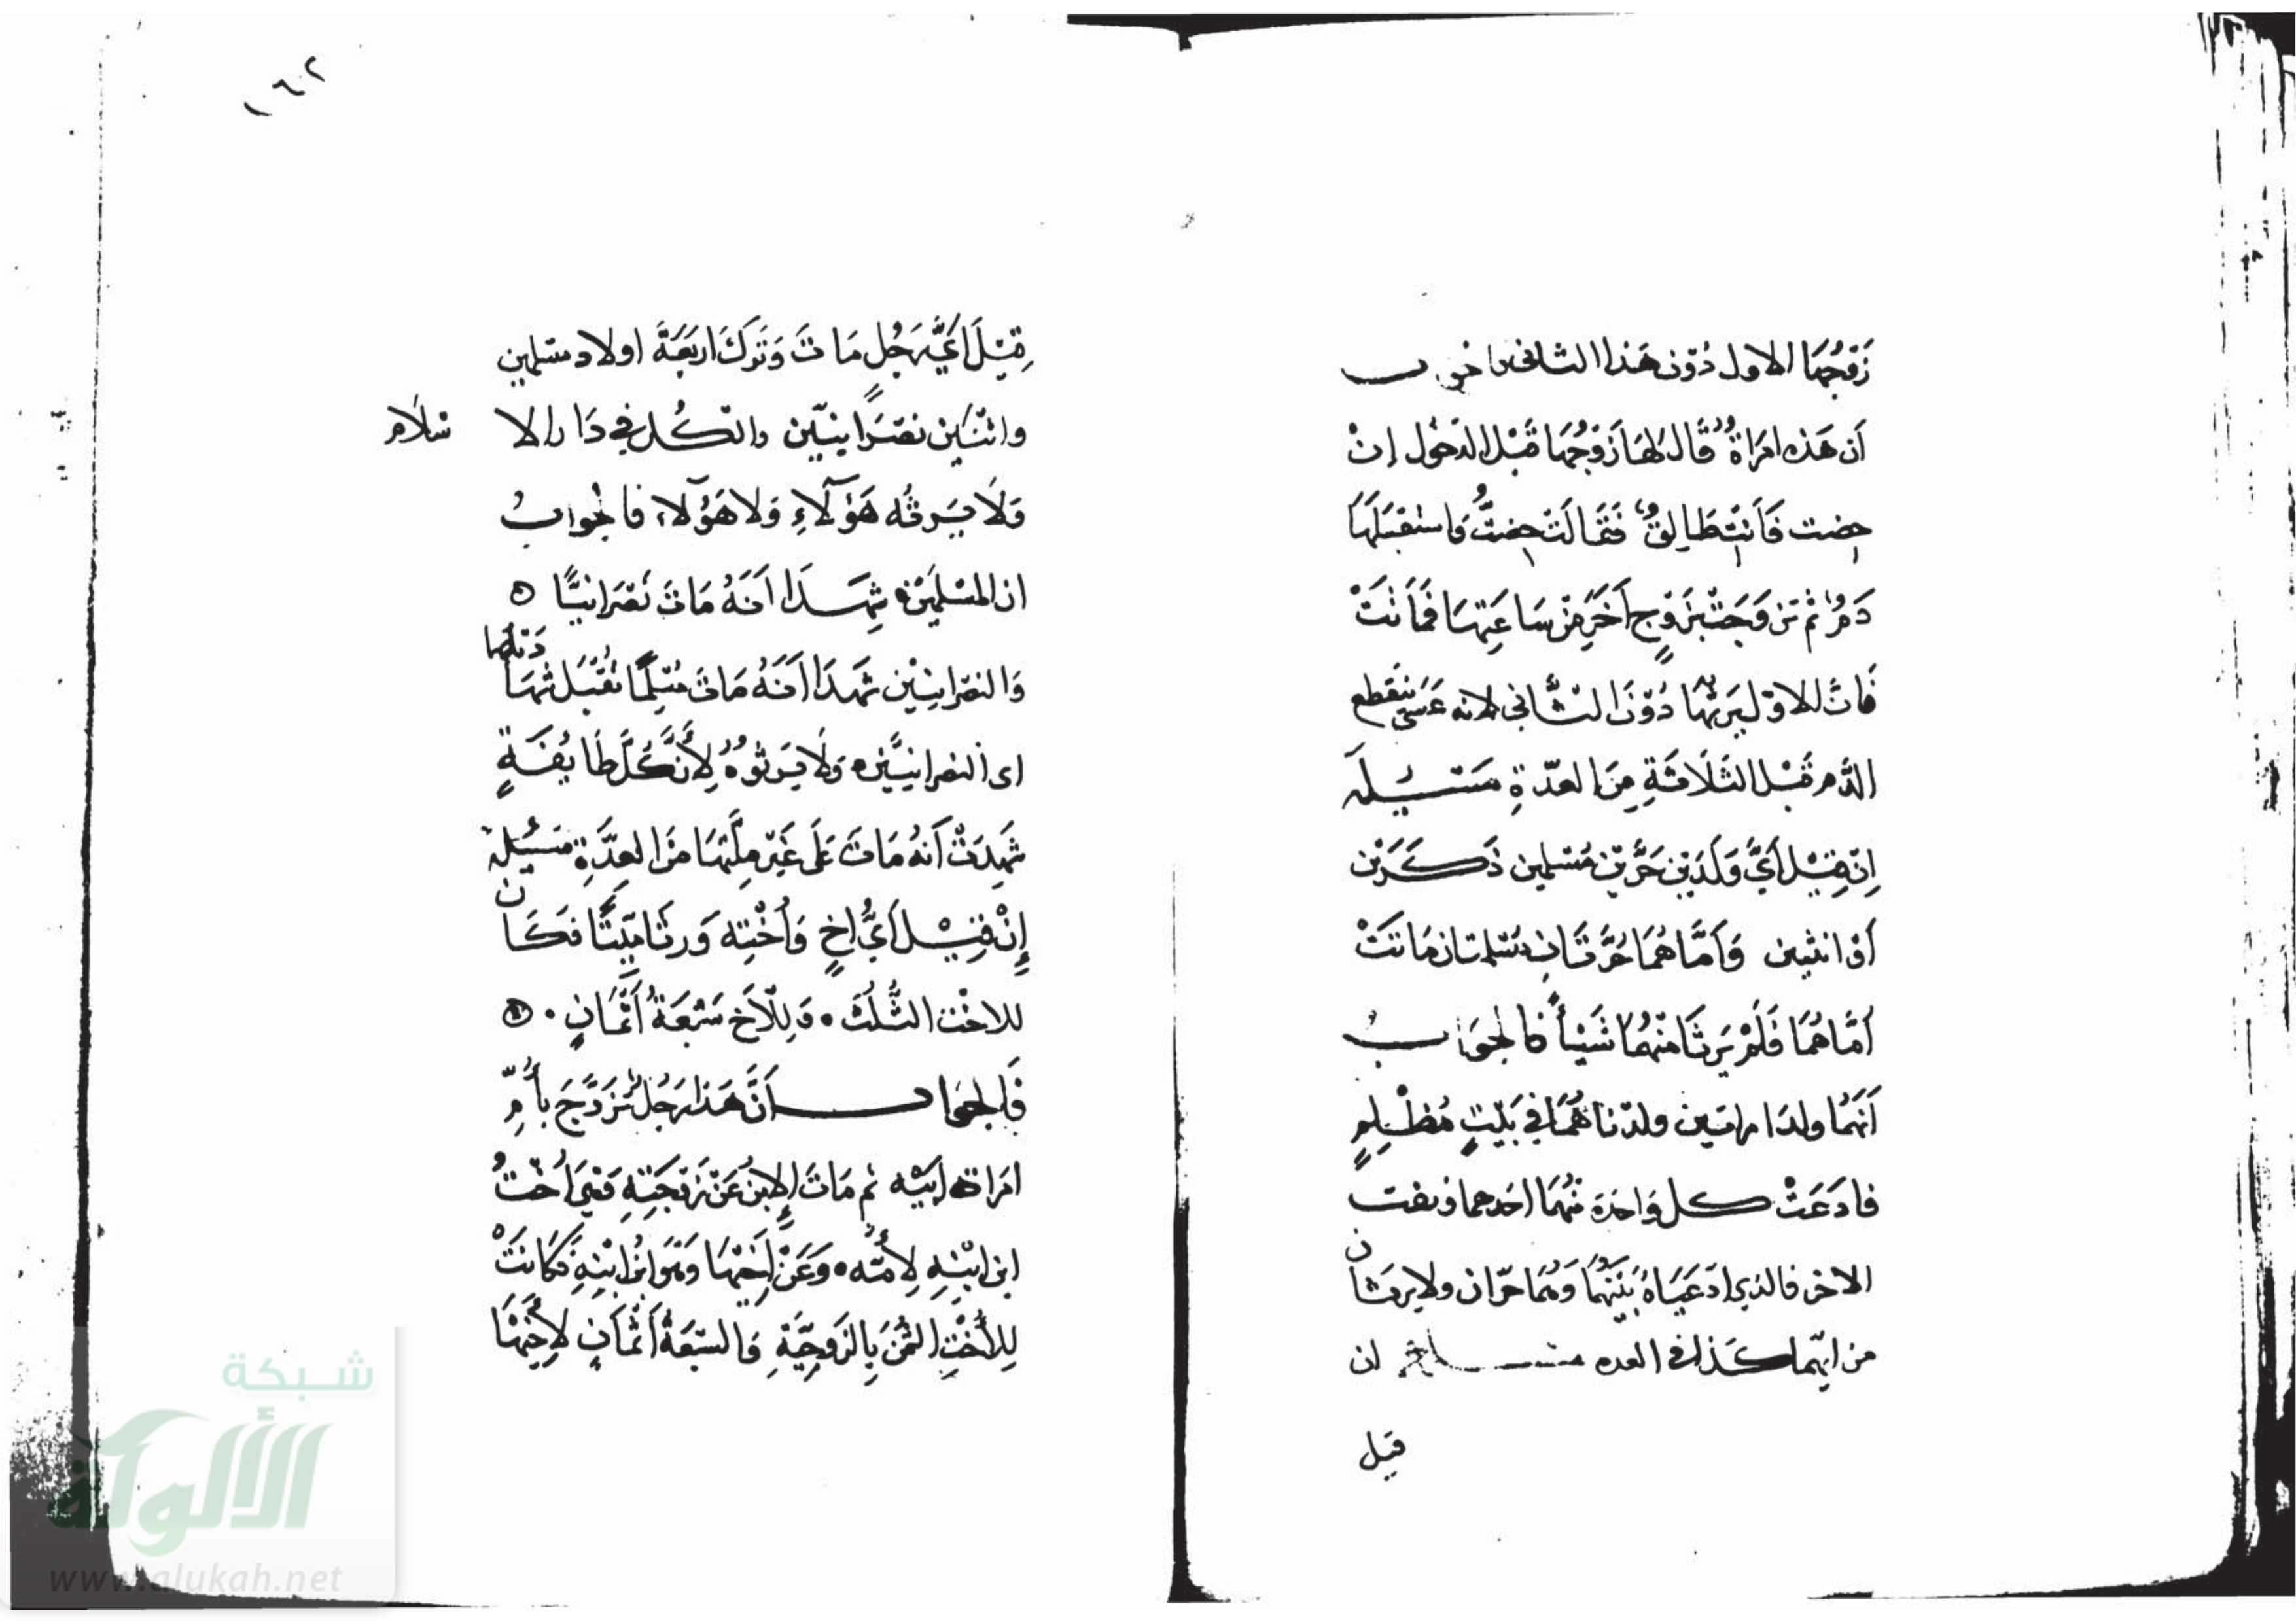 زَوْجُهَا الاول دُوْن هَذا الثانى فالجواب
أن هَذه امَراة قَالَ لهَا زَوْجُهَا قَبْل الدخول إنْ
حِضت فَاَنتِ طَالِقٌ فَقَالَتْ حِضتُ وَاستقبَلهَا
دَمٌ ثم تَزوَجَتْ بزَوْجٍ أخَرٍ مِنْ سَاعَتِهَا فمَاتَتْ
فَانَ للاوّل يَرثهَا دُوْنَ الثَّانى لانه عَسَى ينقطع
الدَّم قَبْل الثَلَاثَةِ مِنَ العدّةِ مَسْئِلَه
إنْ قِيْل أيُّ وَلَدَيْن حُرَّيْن مُسْلمين ذَكَرَيْن
أوْ انثيين وَأمَّاهُمَا حُرَّتَانِ مُسْلمتان مَاتَتْ
أمَّاهُمَا فَلَمْ يَرِثَا مِنْهُمَا شَيْئاً فالجوَابُ
أنَّهمَا ولدَا امراتين ولدتاهُمَا فى بَيْتٍ مُظْلِمٍ
فادعَتْ كل وَاحدَة مِنْهُمَا احَدهما ونفت
الاخر فالذى ادعَيَاهُ بَيْنَهُمَا وَهُمَا حرّان ولا يرثَان
من ايّهما كذا فى العده مسئلة ان
قيل
١٦٢
قِيْلَ أيُّ رَجُلٍ مَاتَ وَتَرَكَ اربَعَةَ اولاد مسْلمين
واثنَيْن نصْرَانِيّين والكُل فى دَار الا سْلام
وَلَا يَرثُه هَؤلَاءِ وَلَا هَؤُلاء فالجوابُ
ان المسْلِمَيْن شهِدَا أنَهُ مَاتَ نَصْرَانيًّا
وَالنصْرانيين شَهدَا أنَهُ مَاتَ مُسْلِمًا تُقْبَل شهَا
دَتهما
اى النصْرانيَّيْن وَلَا يَرثوهُ لِأَنَّ كُلَّ طَايفَةٍ
شَهِدَتْ أنهُ مَاتَ عَلَى غَيْر مِلَّتهَا مِنَ العِدَّةِ مَسْئلة
إِنْ قِيْل أيُّ اخٍ وَأُخْتِه وَرثَا مَيِّتًا فكَان
للاخْت الثُّلُثَ وَلِلْأخ سَبْعَةُ أَثْمَانٍ
فَالجوَاب أنَّ هَذا رَجُل تَزوَّجَ بأُمِّ
امْرَاة ابيْه ثم مَاتَ الإبْن عَنْ زَوْجَتِهِ وَهْىَ أخْتُ
ابن ابْنِهِ لِأمّه وَعَنْ أَخيْهَا وَهْوَ ابْنُ ابْنِهِ فَكَانَتْ
لِلأُخْتِ الثُّمُنَ بِالزَوجِيَّةِ وَالسّبْعَةُ أَثْمَانٍ لأخِيْهَا
شبكة
الألوكة
www.alukah.net